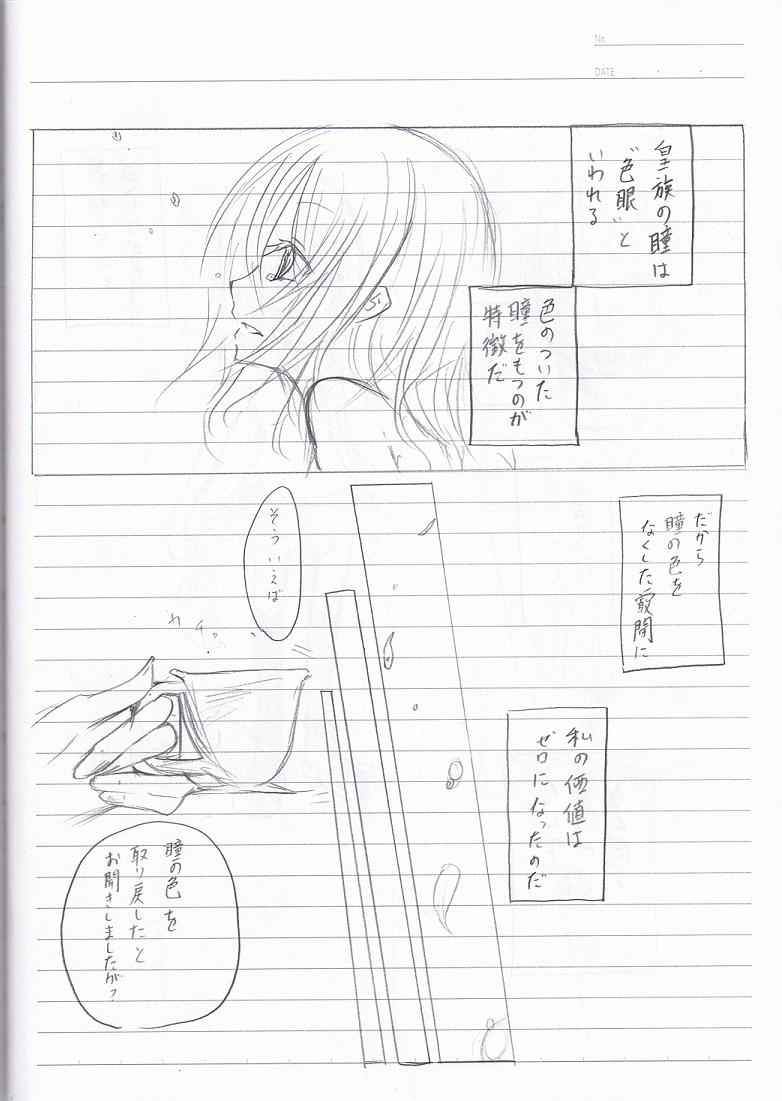 No.
DATE
皇族の瞳は
"色眼"と
いわれる
色のついた
瞳をもつのが
特徴だ
だから
瞳の色を
なくした瞬間に
私の価値は
ゼロになったのだ
そういえば
カチ。
瞳の色を
取り戻したと
お聞きしましたが?